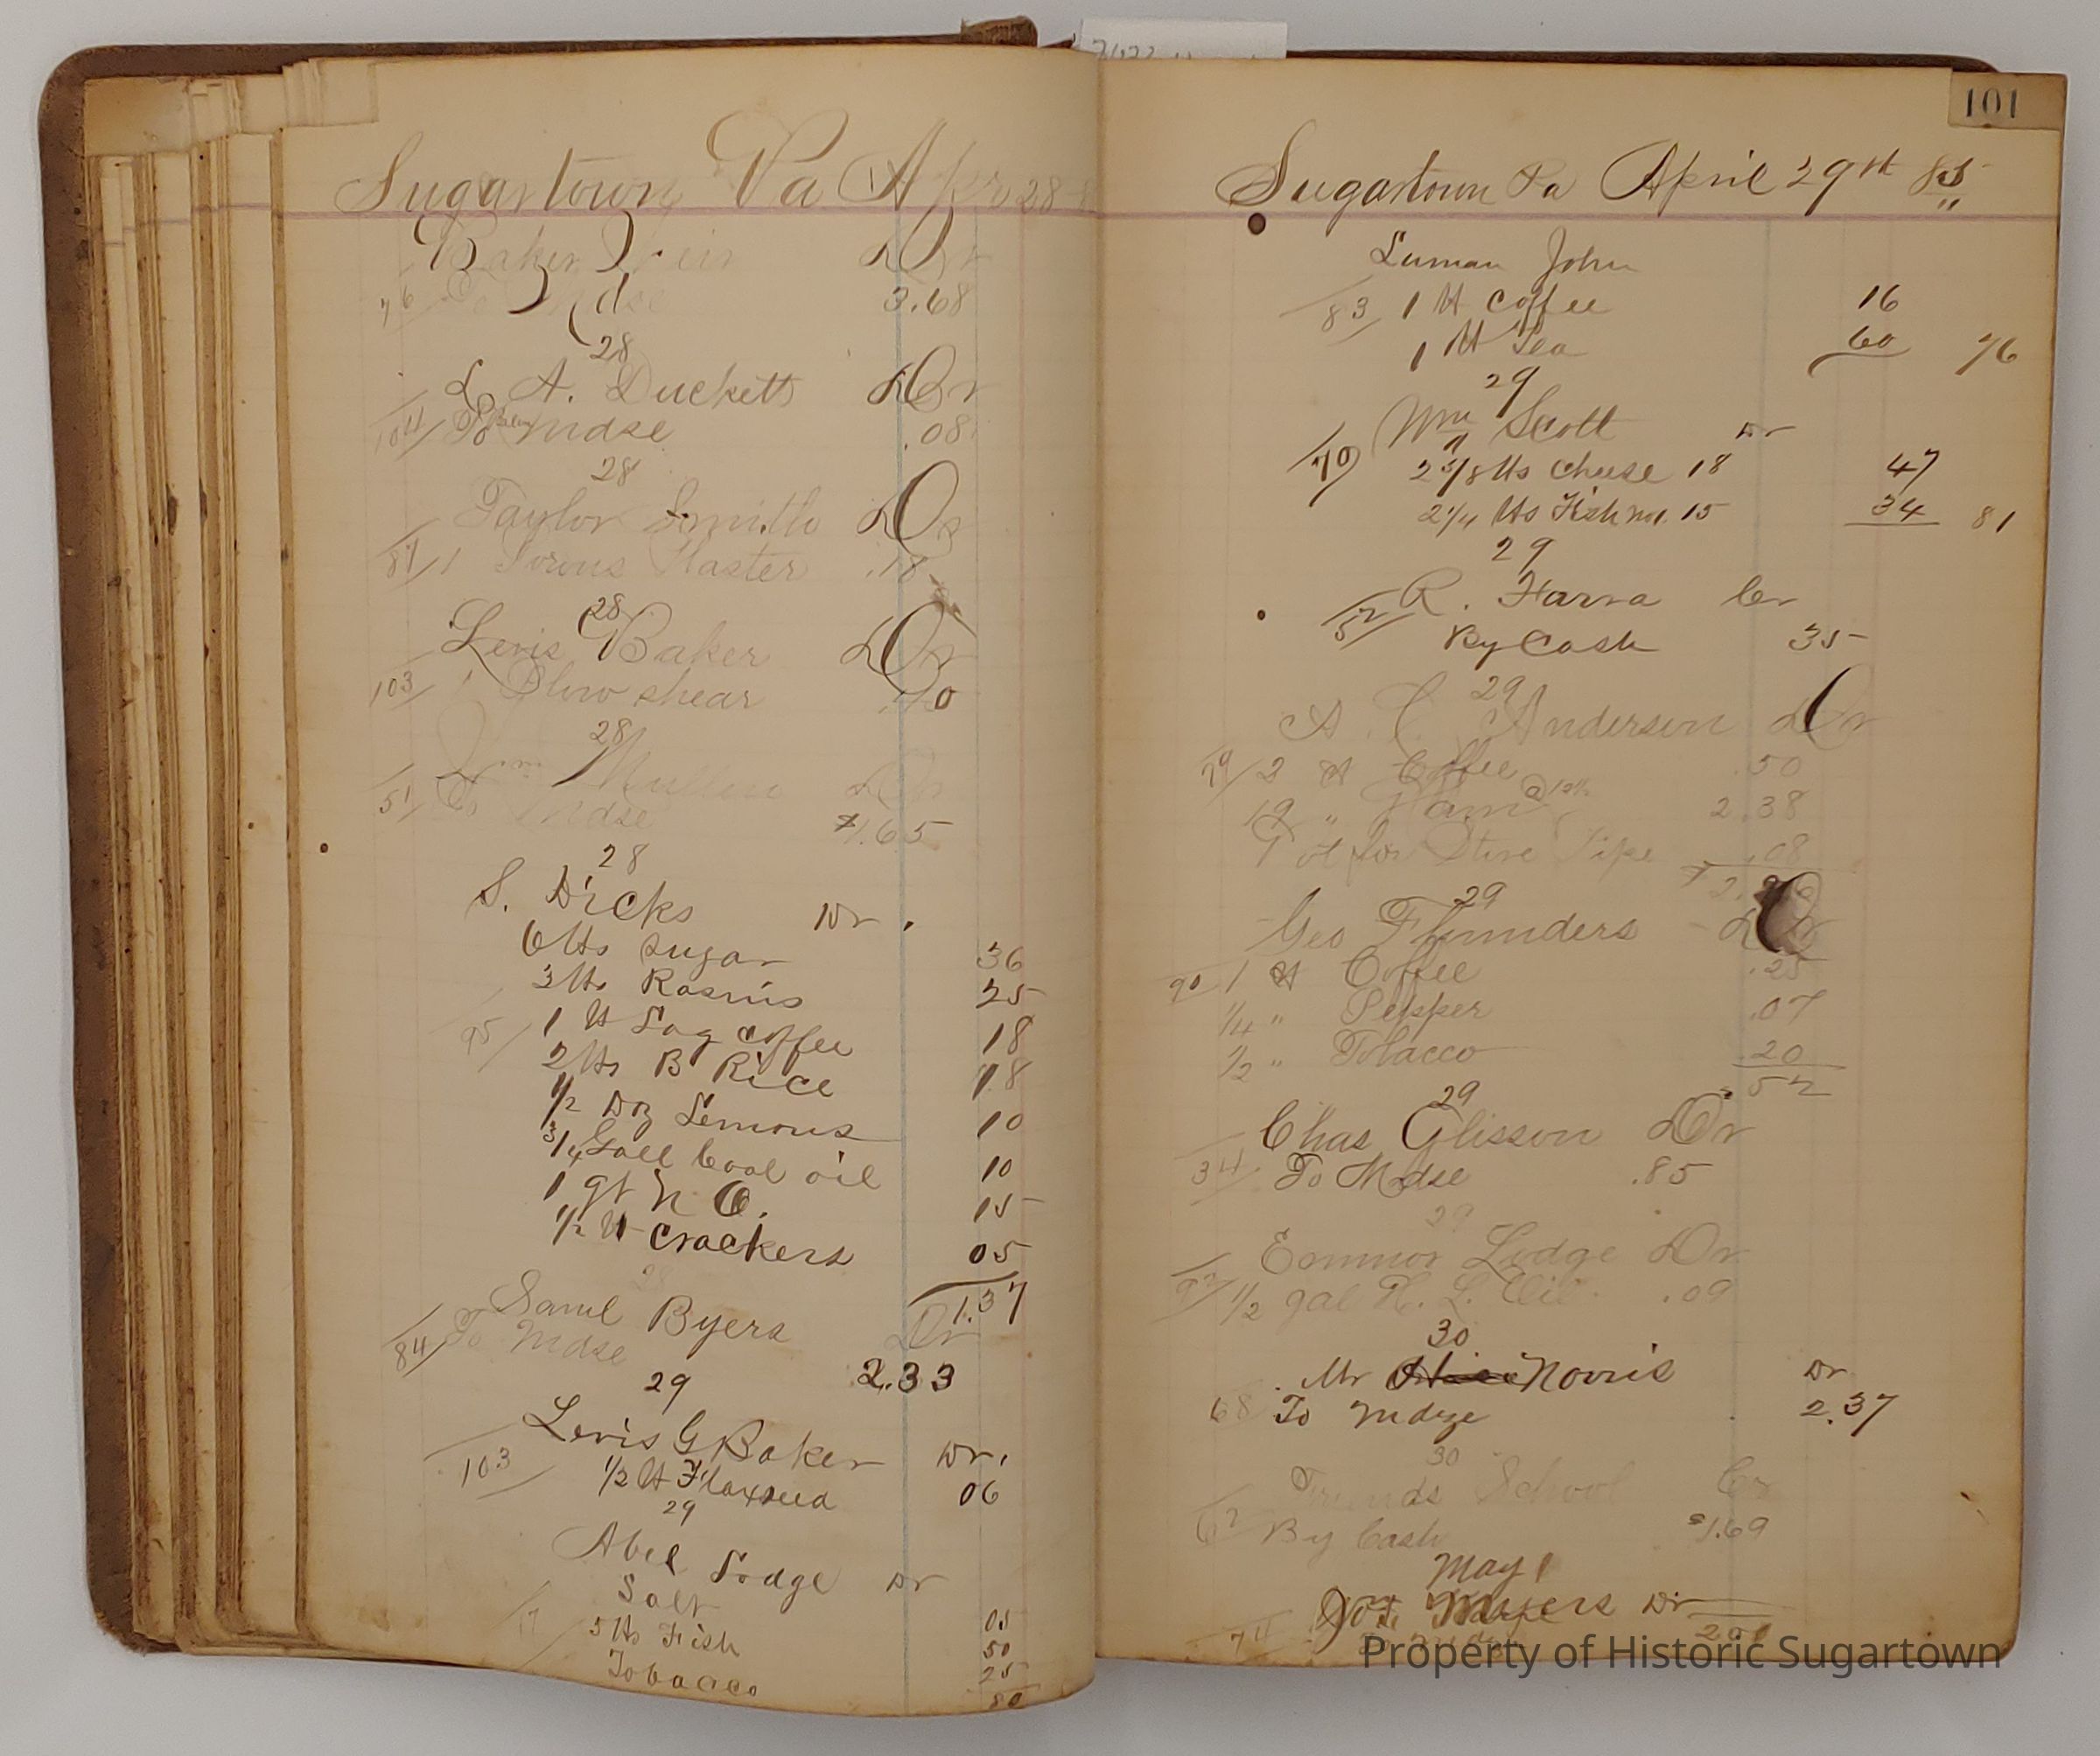 Sugartown Pa Apr 28
Baker
76 Mdse 3.68
28
L. A. Duckett Dr
104 To Mdse .08
28
Taylor Smith Dr
87 1 Porous Plaster .18
28
Levis G Baker Dr
103 1 Plow shear .40
28
Wm Mullen Dr
51 To Mdse $1.65
28
S. Dicks Dr.
6 lbs Sugar 36
3 lbs Rasins 25
95 1 lb Lag coffee 18
2 lbs B Rice 18
1/2 Dz Lemons 10
3/4 Gall Coal oil 10
1 qt N O. 15
1/2 lb Crackers 05
1.37
28
Saml Byers Dr
84 To Mdse 2.33
29
Levis G Baker Dr.
103 1/2 lb Flaxseed 06
29
Abel Lodge Dr
Salt 05
5 lbs Fish 50
Tobacco 25
80
101
Sugartown Pa April 29th 85
Luman John
83 1 lb Coffee 16
1 lb Tea 60 76
29
Wm Scott Dr
70 2 5/8 lbs Cheese 18 47
2 1/4 lbs Fish no1. 15 34 81
29
R. Farra Cr
52 By Cash 35
29
A. C. Anderson Dr
79 2 lb Coffee .50
19 " Ham 2.38
T ot for Stove Pipe .08
29
Geo Flounders Dr
90 1 lb Coffee .25
1/4 " Pepper .07
1/2 " Tobacco 20
52
29
Chas Glisson Dr
34 To Mdse .85
29
Lodge Dr
92 1/2 gal H. L. Oil .09
30
Mr Norris Dr
68 To Mdze 2.37
30
Friends School Cr
62 By Cash $1.69
May 1
Myers Dr
74
Property of Historic Sugartown